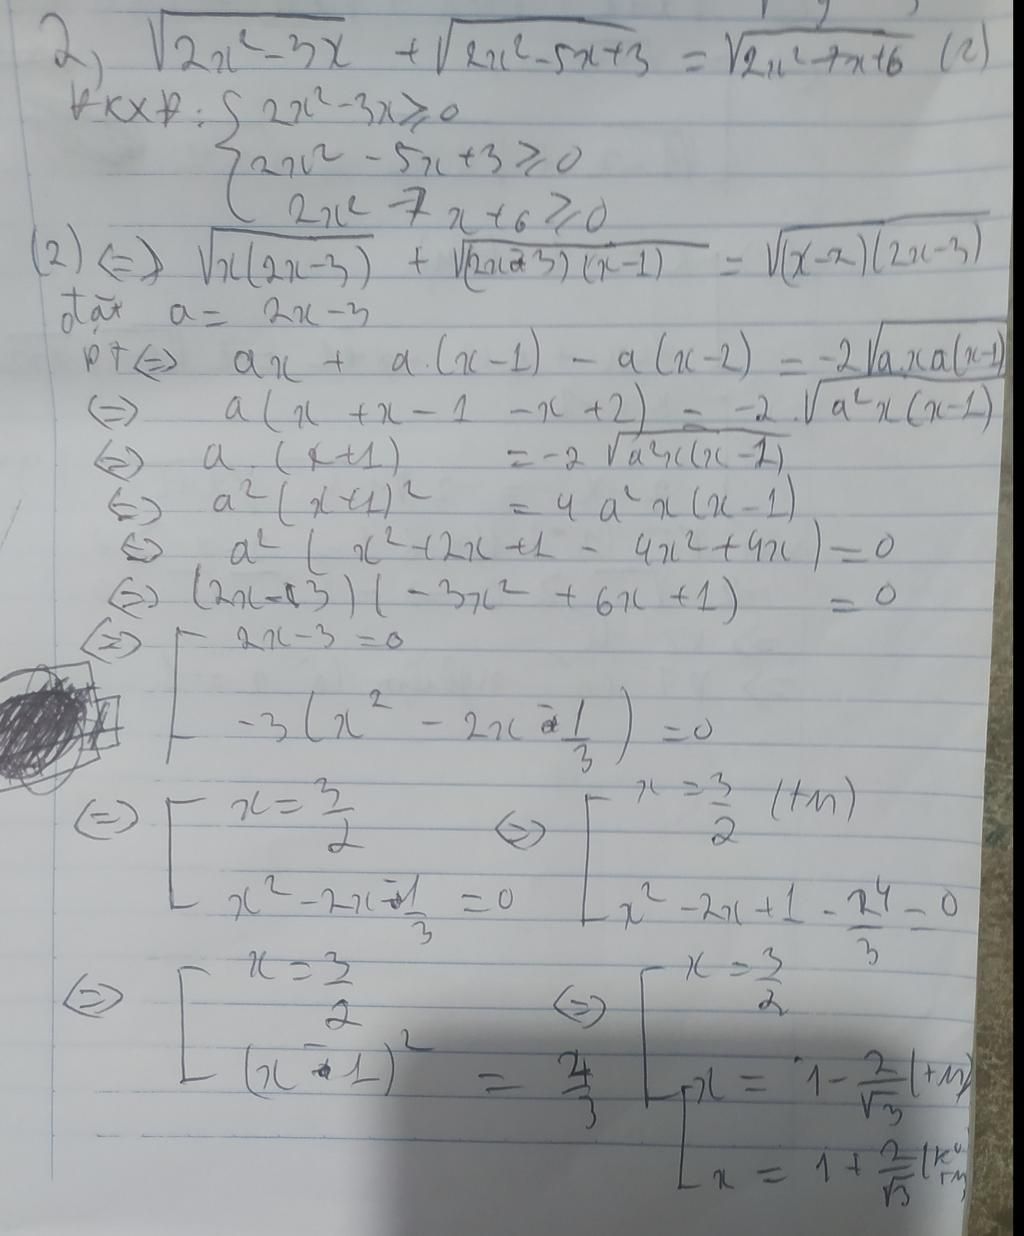 2, √(2x² - 3x) + √(2x² - 5x + 3) = √(2x² - 7x + 6) (2)
ĐKXĐ: { 2x² - 3x ≥ 0
2x² - 5x + 3 ≥ 0
2x² - 7x + 6 ≥ 0
(2) ⇔ √(x(2x-3)) + √((2x-3)(x-1)) = √((x-2)(2x-3))
đặt a = 2x - 3
PT ⇔ ax + a.(x-1) - a(x-2) = -2√(a.xa(x-1))
⇔ a(x + x - 1 - x + 2) = -2.√(a²x(x-1))
⇔ a.(x+1) = -2√(a²x(x-1))
⇔ a²(x+1)² = 4a²x(x-1)
⇔ a²(x² + 2x + 1 - 4x² + 4x) = 0
⇔ (2x-3)(-3x² + 6x + 1) = 0
⇔ [ 2x - 3 = 0
-3(x² - 2x - 1/3) = 0
⇔ [ x = 3/2 ⇔ [ x = 3/2 (tm)
x² - 2x - 1/3 = 0 x² - 2x + 1 - 4/3 = 0
⇔ [ x = 3/2 ⇔ [ x = 3/2
(x - 1)² = 4/3 [ x = 1 - 2/√3 (tm)
x = 1 + 2/√3 (ko tm)